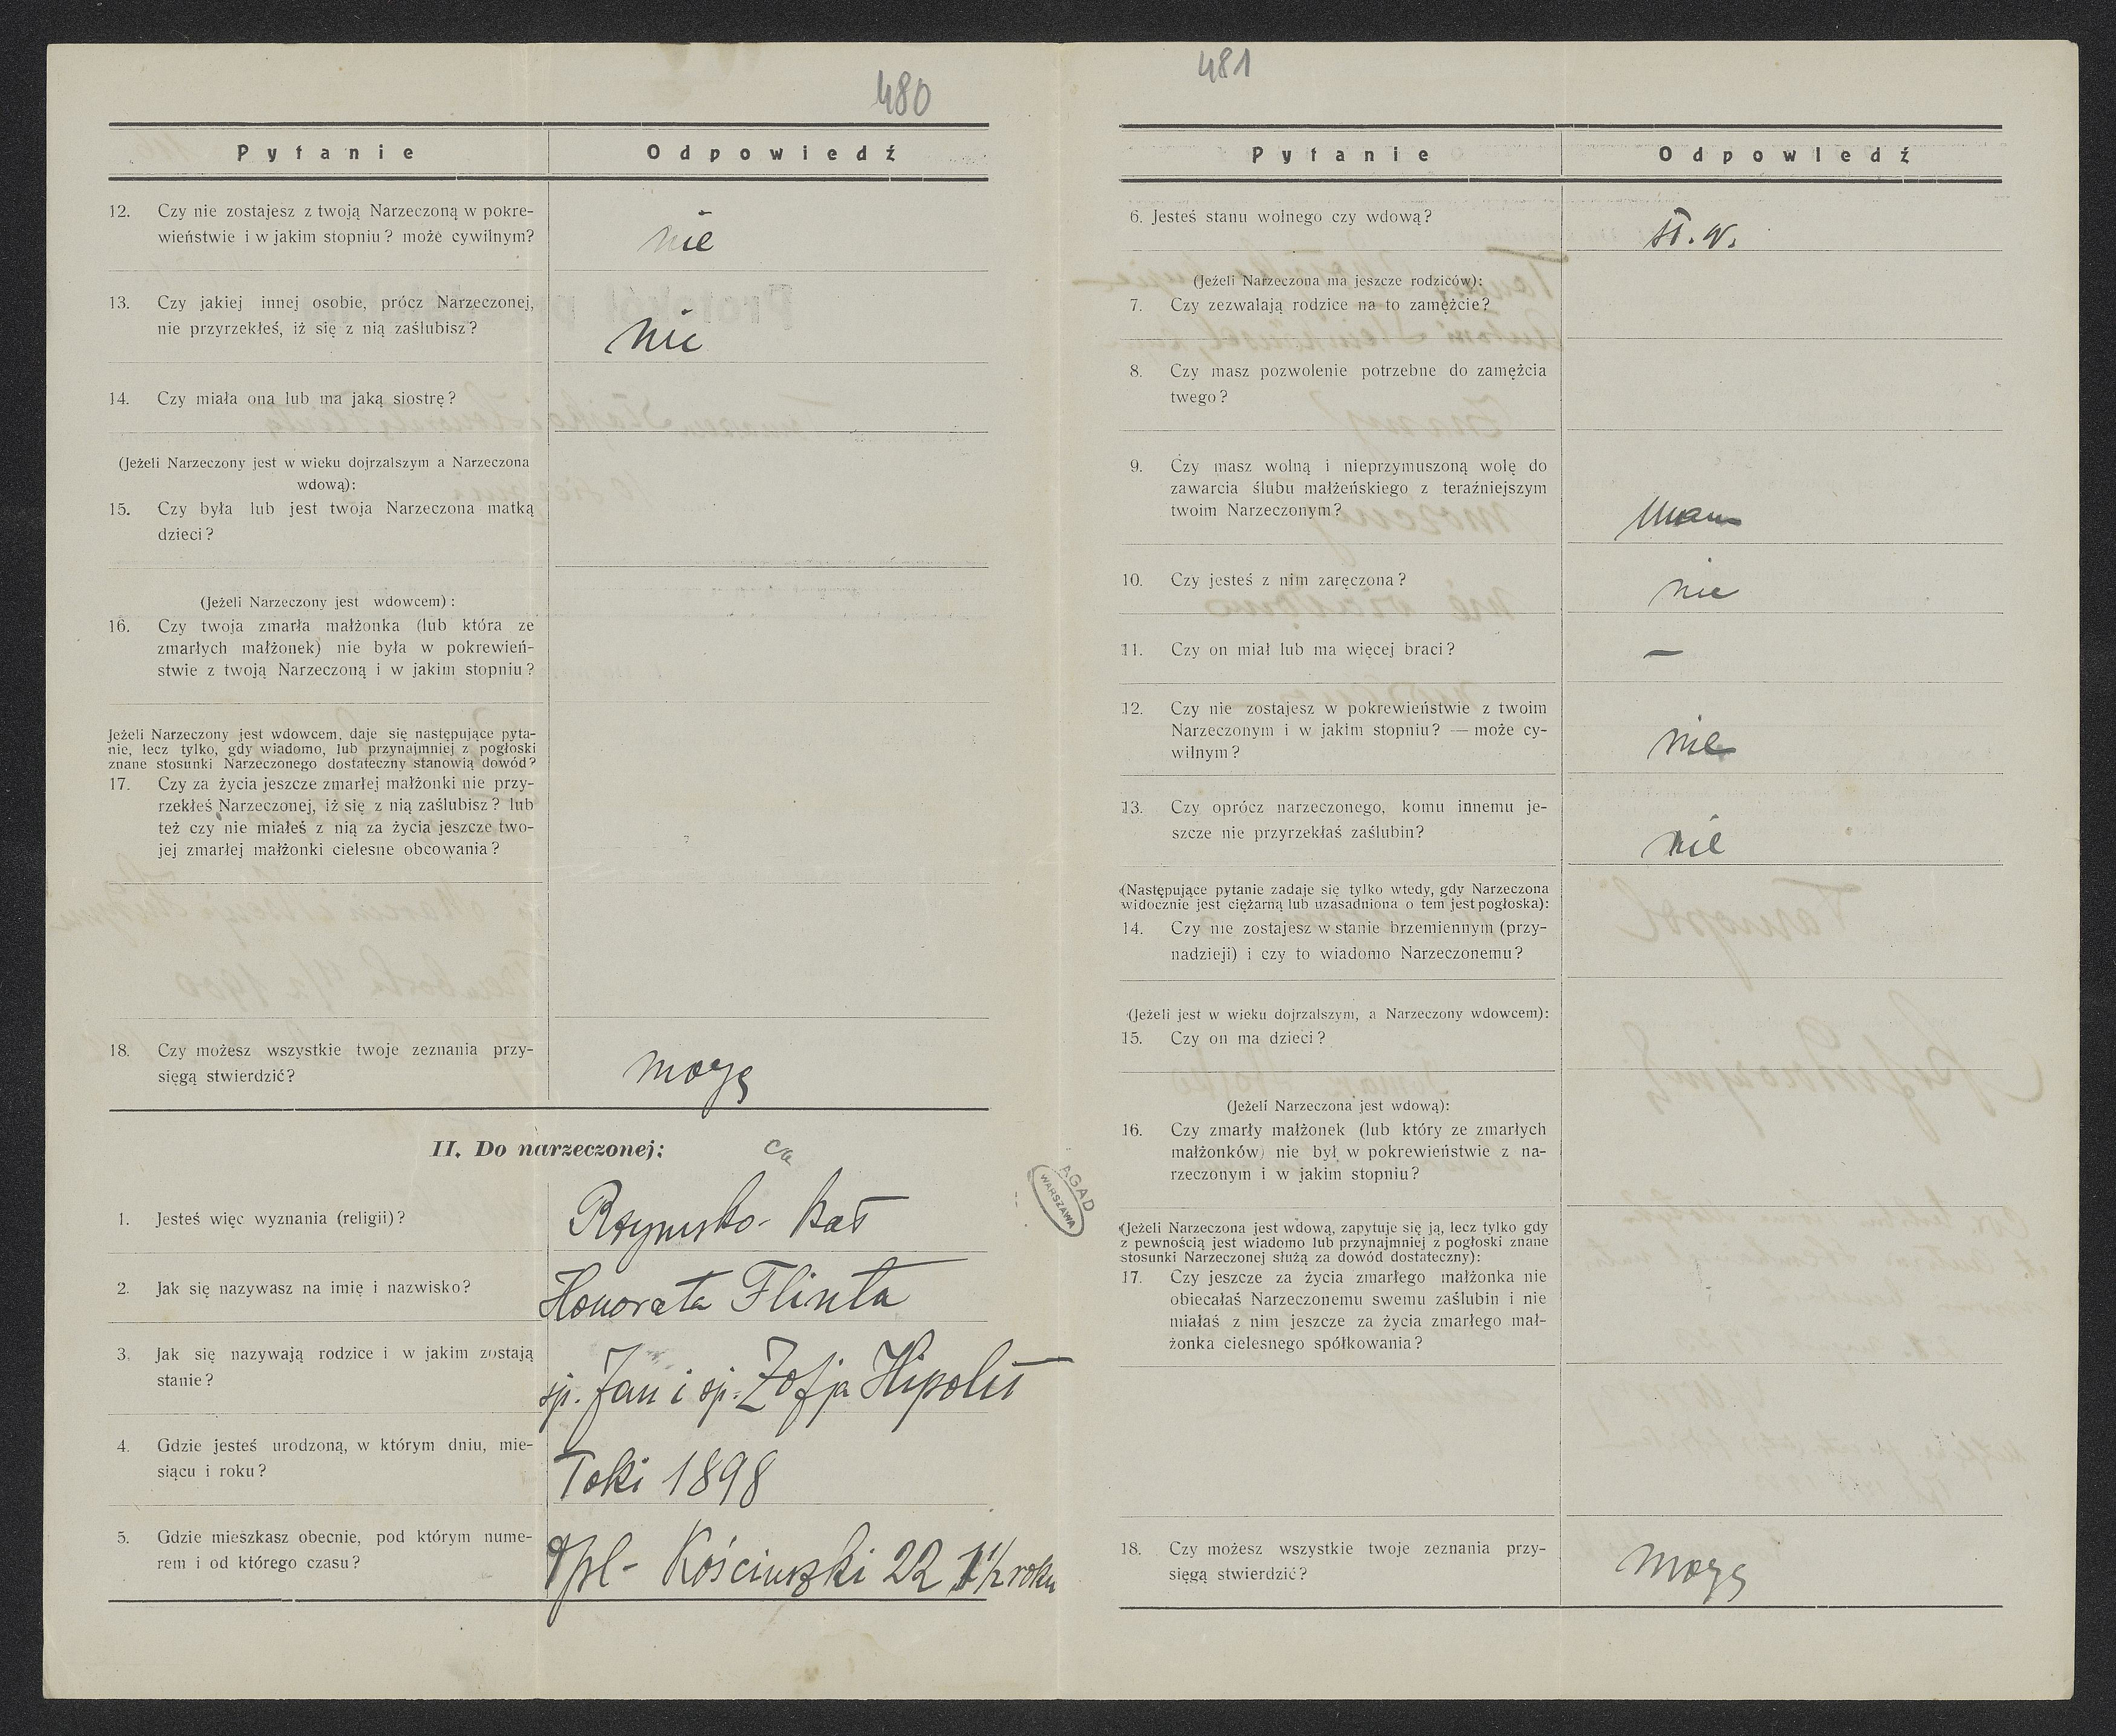 480
Pytanie Odpowiedź
12. Czy nie zostajesz z twoją Narzeczoną w pokre-
wieństwie i w jakim stopniu? może cywilnym?
nie
13. Czy jakiej innej osobie, prócz Narzeczonej,
nie przyrzekłeś, iż się z nią zaślubisz?
nie
14. Czy miała ona lub ma jaką siostrę?
(Jeżeli Narzeczony jest w wieku dojrzalszym a Narzeczona
wdową):
15. Czy była lub jest twoja Narzeczona matką
dzieci?
(Jeżeli Narzeczony jest wdowcem):
16. Czy twoja zmarła małżonka (lub która ze
zmarłych małżonek) nie była w pokrewień-
stwie z twoją Narzeczoną i w jakim stopniu?
Jeżeli Narzeczony jest wdowcem, daje się następujące pyta-
nie, lecz tylko, gdy wiadomo, lub przynajmniej z pogłoski
znane stosunki Narzeczonego dostateczny stanowią dowód?
17. Czy za życia jeszcze zmarłej małżonki nie przy-
rzekłeś Narzeczonej, iż się z nią zaślubisz? lub
też czy nie miałeś z nią za życia jeszcze two-
jej zmarłej małżonki cielesne obcowania?
18. Czy możesz wszystkie twoje zeznania przy-
sięgą stwierdzić?
mogę
II. Do narzeczonej:
1. Jesteś więc wyznania (religii)?
Rzymsko-kat
2. Jak się nazywasz na imię i nazwisko?
Honorata Flinta
3. Jak się nazywają rodzice i w jakim zostają
stanie?
śp. Jan i śp. Zofja Hipolit
4. Gdzie jesteś urodzoną, w którym dniu, mie-
siącu i roku?
Toki 1898
5. Gdzie mieszkasz obecnie, pod którym nume-
rem i od którego czasu?
Tpl- Kościuszki 22 1 1/2 roku
AGAD
WARSZAWA
481
Pytanie Odpowiedź
6. Jesteś stanu wolnego czy wdową?
st. w.
(Jeżeli Narzeczona ma jeszcze rodziców):
7. Czy zezwalają rodzice na to zamężcie?
8. Czy masz pozwolenie potrzebne do zamężcia
twego?
9. Czy masz wolną i nieprzymuszoną wolę do
zawarcia ślubu małżeńskiego z teraźniejszym
twoim Narzeczonym?
mam
10. Czy jesteś z nim zaręczona?
nie
11. Czy on miał lub ma więcej braci?
—
12. Czy nie zostajesz w pokrewieństwie z twoim
Narzeczonym i w jakim stopniu? — może cy-
wilnym?
nie
13. Czy oprócz narzeczonego, komu innemu je-
szcze nie przyrzekłaś zaślubin?
nie
(Następujące pytanie zadaje się tylko wtedy, gdy Narzeczona
widocznie jest ciężarną lub uzasadniona o tem jest pogłoska):
14. Czy nie zostajesz w stanie brzemiennym (przy-
nadzieji) i czy to wiadomo Narzeczonemu?
(Jeżeli jest w wieku dojrzalszym, a Narzeczony wdowcem):
15. Czy on ma dzieci?
(Jeżeli Narzeczona jest wdową):
16. Czy zmarły małżonek (lub który ze zmarłych
małżonków) nie był w pokrewieństwie z na-
rzeczonym i w jakim stopniu?
(Jeżeli Narzeczona jest wdową, zapytuje się ją, lecz tylko gdy
z pewnością jest wiadomo lub przynajmniej z pogłoski znane
stosunki Narzeczonej służą za dowód dostateczny):
17. Czy jeszcze za życia zmarłego małżonka nie
obiecałaś Narzeczonemu swemu zaślubin i nie
miałaś z nim jeszcze za życia zmarłego mał-
żonka cielesnego spółkowania?
18. Czy możesz wszystkie twoje zeznania przy-
sięgą stwierdzić?
mogę